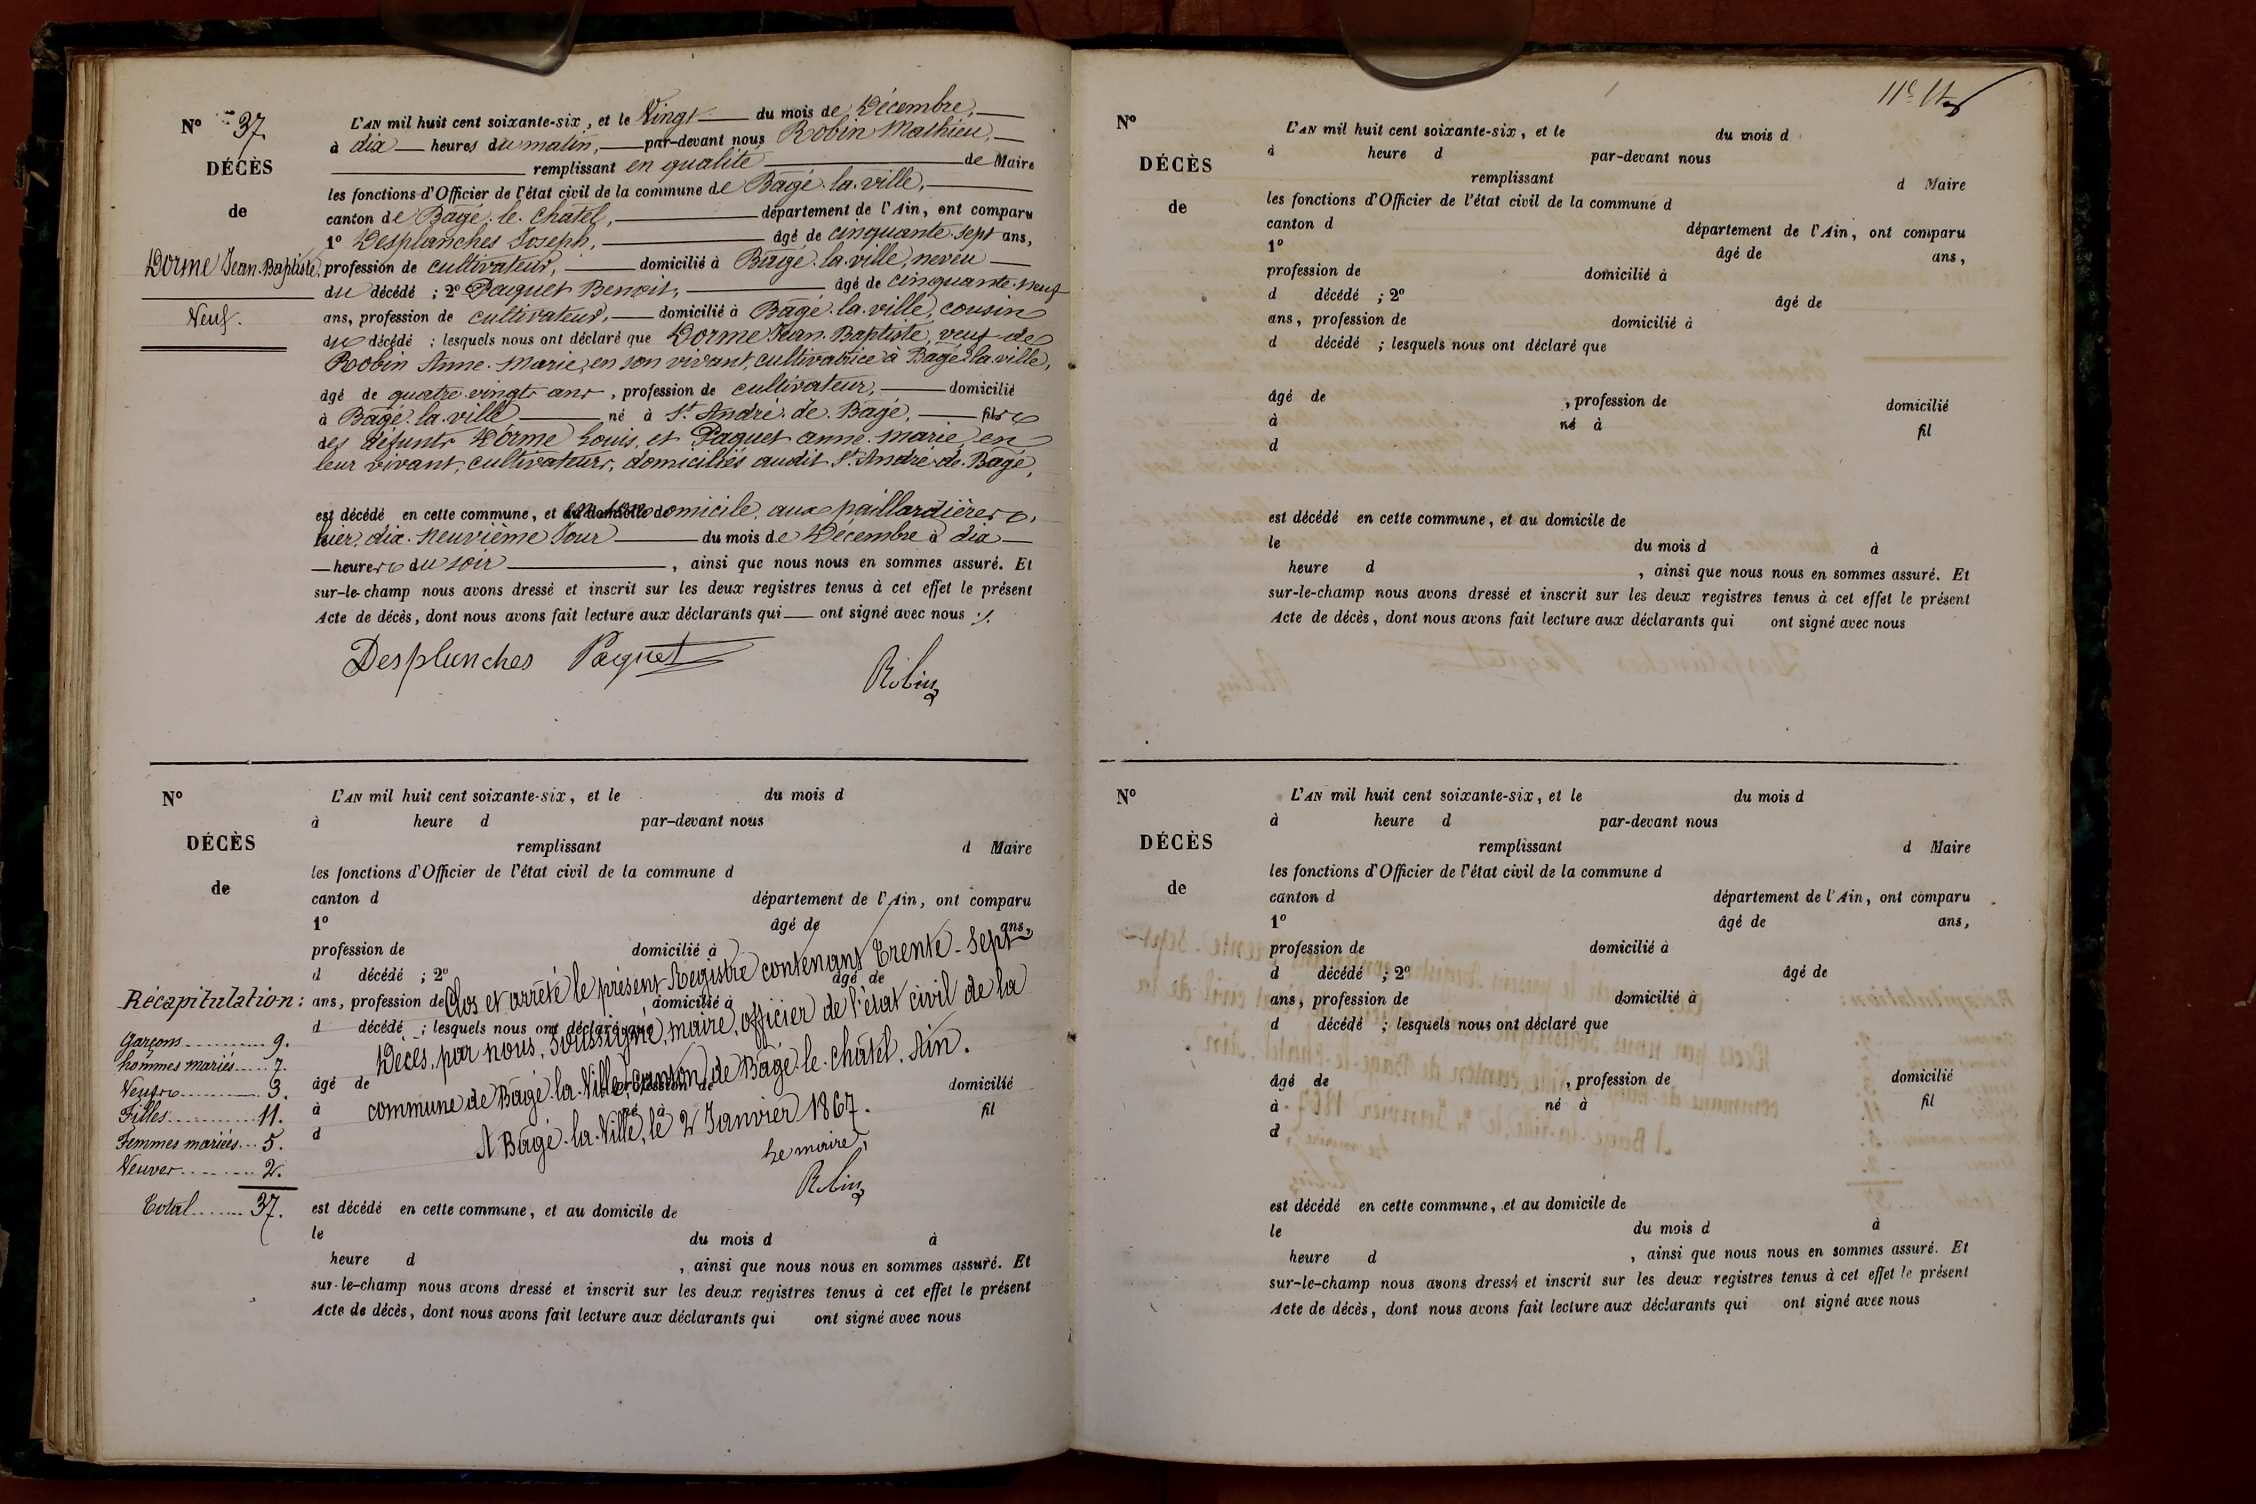 N° 37
DÉCÈS
de
Dorme Jean-Baptiste,
Veuf.
L'AN mil huit cent soixante-six, et le Vingt du mois de Décembre,
à dix heures du matin, par-devant nous Robin Mathieu,
remplissant en qualité de Maire
les fonctions d'Officier de l'état civil de la commune de Bâgé-la-ville,
canton de Bâgé-le-Chatel, département de l'Ain, ont comparu
1° Desplanches Joseph, âgé de cinquante-sept ans,
profession de cultivateur, domicilié à Bâgé-la-ville, neveu
du décédé ; 2° Paquet Benoit, âgé de cinquante-neuf
ans, profession de cultivateur, domicilié à Bâgé-la-ville, cousin
du décédé ; lesquels nous ont déclaré que Dorme Jean-Baptiste, veuf de
Robin Anne-Marie, en son vivant, cultivatrice à Bâgé-la-ville,
âgé de quatre-vingts ans, profession de cultivateur, domicilié
à Bâgé-la-ville né à St. André-de-Bâgé, fils
des défunts Dorme Louis, et Paquet anne-marie, en
leur vivant, cultivateurs, domiciliés audit St. André-de-Bâgé,
est décédé en cette commune, et au domicile de omicile, aux paillardières,
hier, dix-neuvième Jour du mois de Décembre à dix
heures du soir, ainsi que nous nous en sommes assuré. Et
sur-le-champ nous avons dressé et inscrit sur les deux registres tenus à cet effet le présent
Acte de décès, dont nous avons fait lecture aux déclarants qui ont signé avec nous
Desplanches Paquet
Robin
N°
DÉCÈS
de
L'AN mil huit cent soixante-six, et le du mois d
à heure d par-devant nous
remplissant d Maire
les fonctions d'Officier de l'état civil de la commune d
canton d département de l'Ain, ont comparu
1° âgé de ans,
profession de domicilié à
d décédé ; 2° âgé de
ans, profession de domicilié à
d décédé ; lesquels nous ont déclaré que
âgé de , profession de domicilié
à né à fil
d
Clos et arrêté le présent Registre contenant Trente-Sept
Décès, par nous, soussigné, maire, officier de l'état civil de la
commune de Bâgé-la-Ville, canton de Bâgé-le-châtel, Ain.
A Bâgé-la-Ville, le 2 Janvier 1867.
Le maire,
Robin
Récapitulation :
Garçons 9.
hommes mariés 7.
Veufs 3.
Filles 11.
Femmes mariées 5.
Veuves 2.
Total 37.
est décédé en cette commune, et au domicile de
le du mois d à
heure d , ainsi que nous nous en sommes assuré. Et
sur-le-champ nous avons dressé et inscrit sur les deux registres tenus à cet effet le présent
Acte de décès, dont nous avons fait lecture aux déclarants qui ont signé avec nous
N°
DÉCÈS
de
L'AN mil huit cent soixante-six, et le du mois d
à heure d par-devant nous
remplissant d Maire
les fonctions d'Officier de l'état civil de la commune d
canton d département de l'Ain, ont comparu
1° âgé de ans,
profession de domicilié à
d décédé ; 2° âgé de
ans, profession de domicilié à
d décédé ; lesquels nous ont déclaré que
âgé de , profession de domicilié
à né à fil
d
est décédé en cette commune, et au domicile de
le du mois d à
heure d , ainsi que nous nous en sommes assuré. Et
sur-le-champ nous avons dressé et inscrit sur les deux registres tenus à cet effet le présent
Acte de décès, dont nous avons fait lecture aux déclarants qui ont signé avec nous
N°
DÉCÈS
de
L'AN mil huit cent soixante-six, et le du mois d
à heure d par-devant nous
remplissant d Maire
les fonctions d'Officier de l'état civil de la commune d
canton d département de l'Ain, ont comparu
1° âgé de ans,
profession de domicilié à
d décédé ; 2° âgé de
ans, profession de domicilié à
d décédé ; lesquels nous ont déclaré que
âgé de , profession de domicilié
à né à fil
d
est décédé en cette commune, et au domicile de
le du mois d à
heure d , ainsi que nous nous en sommes assuré. Et
sur-le-champ nous avons dressé et inscrit sur les deux registres tenus à cet effet le présent
Acte de décès, dont nous avons fait lecture aux déclarants qui ont signé avec nous